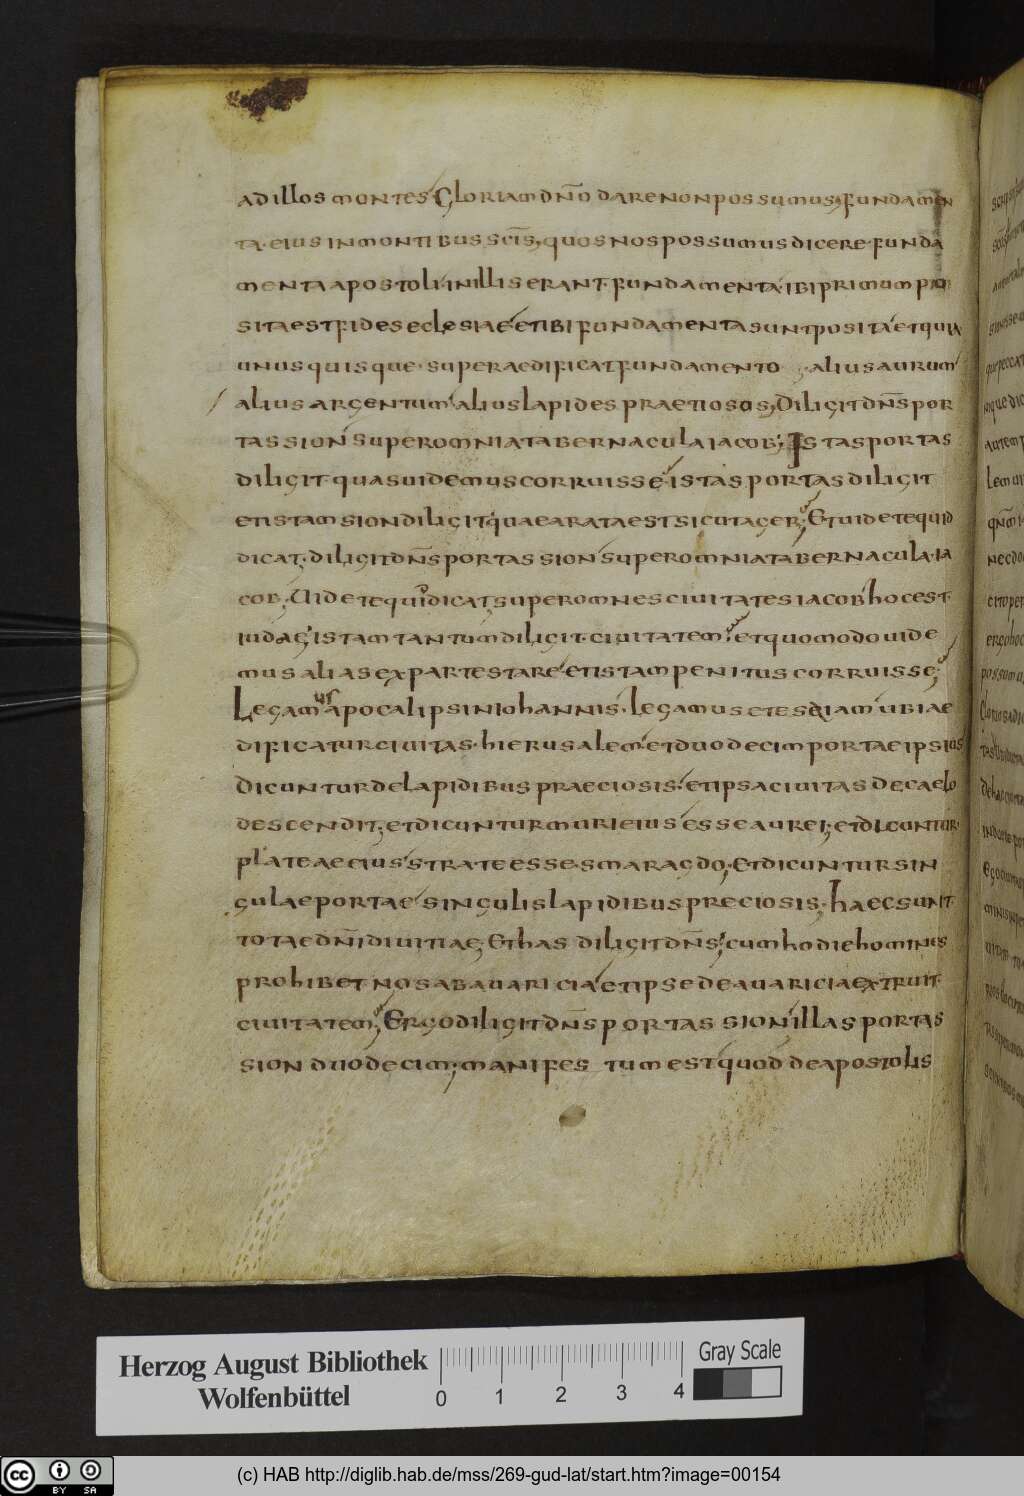 ad illos montes Gloriam dn̄o dare non possumus, fundamen
ta. eius in montibus sc̄is, quos nos possumus dicere. funda
menta apostoli in illis erant. fundamenta ibi primum po
sita est fides eclesiae et ibi fundamenta sunt posita et quia
unusquisque. superaedificat fundamento . alius aurum
alius argentum alius lapides praetiosos, Diligit dn̄s por
tas sion super omnia tabernacula iacob; Istas portas
diligit quas uidemus corruisse istas portas diligit
et istam sion diligit quae arata est sicut ager; Et uidete quid
dicat. diligit dn̄s portas sion super omnia tabernacula. ia
cob; Uidete quid dicat, super omnes ciuitates iacob hoc est.
iudae istam tantum diligit. ciuitatem et quomodo uide
mus alias ex parte stare et istam penitus corruisse;
Legamus apocalipsin iohannis. Legamus et esaiam ubi ae
dificatur ciuitas. hierusalem et duodecim portae ipsius
dicuntur de lapidibus praeciosis. et ipsa ciuitas de caelo
descendit. et dicuntur muri eius esse aurei. et dicuntur
plateae eius stratae esse smaragdo; Et dicuntur sin
gulae portae singulis lapidibus preciosis. haec sunt
totae dn̄i diuitiae; Et has diligit dn̄s, cum hodie homines
prohibet nos ab auaricia et ipse de auaricia extruit.
ciuitatem; Ergo diligit dn̄s portas sion illas portas
sion duodecim; manifestum est quod de apostolis
Herzog August Bibliothek
Wolfenbüttel
0 1 2 3 4
Gray Scale
cc BY SA
(c) HAB http://diglib.hab.de/mss/269-gud-lat/start.htm?image=00154